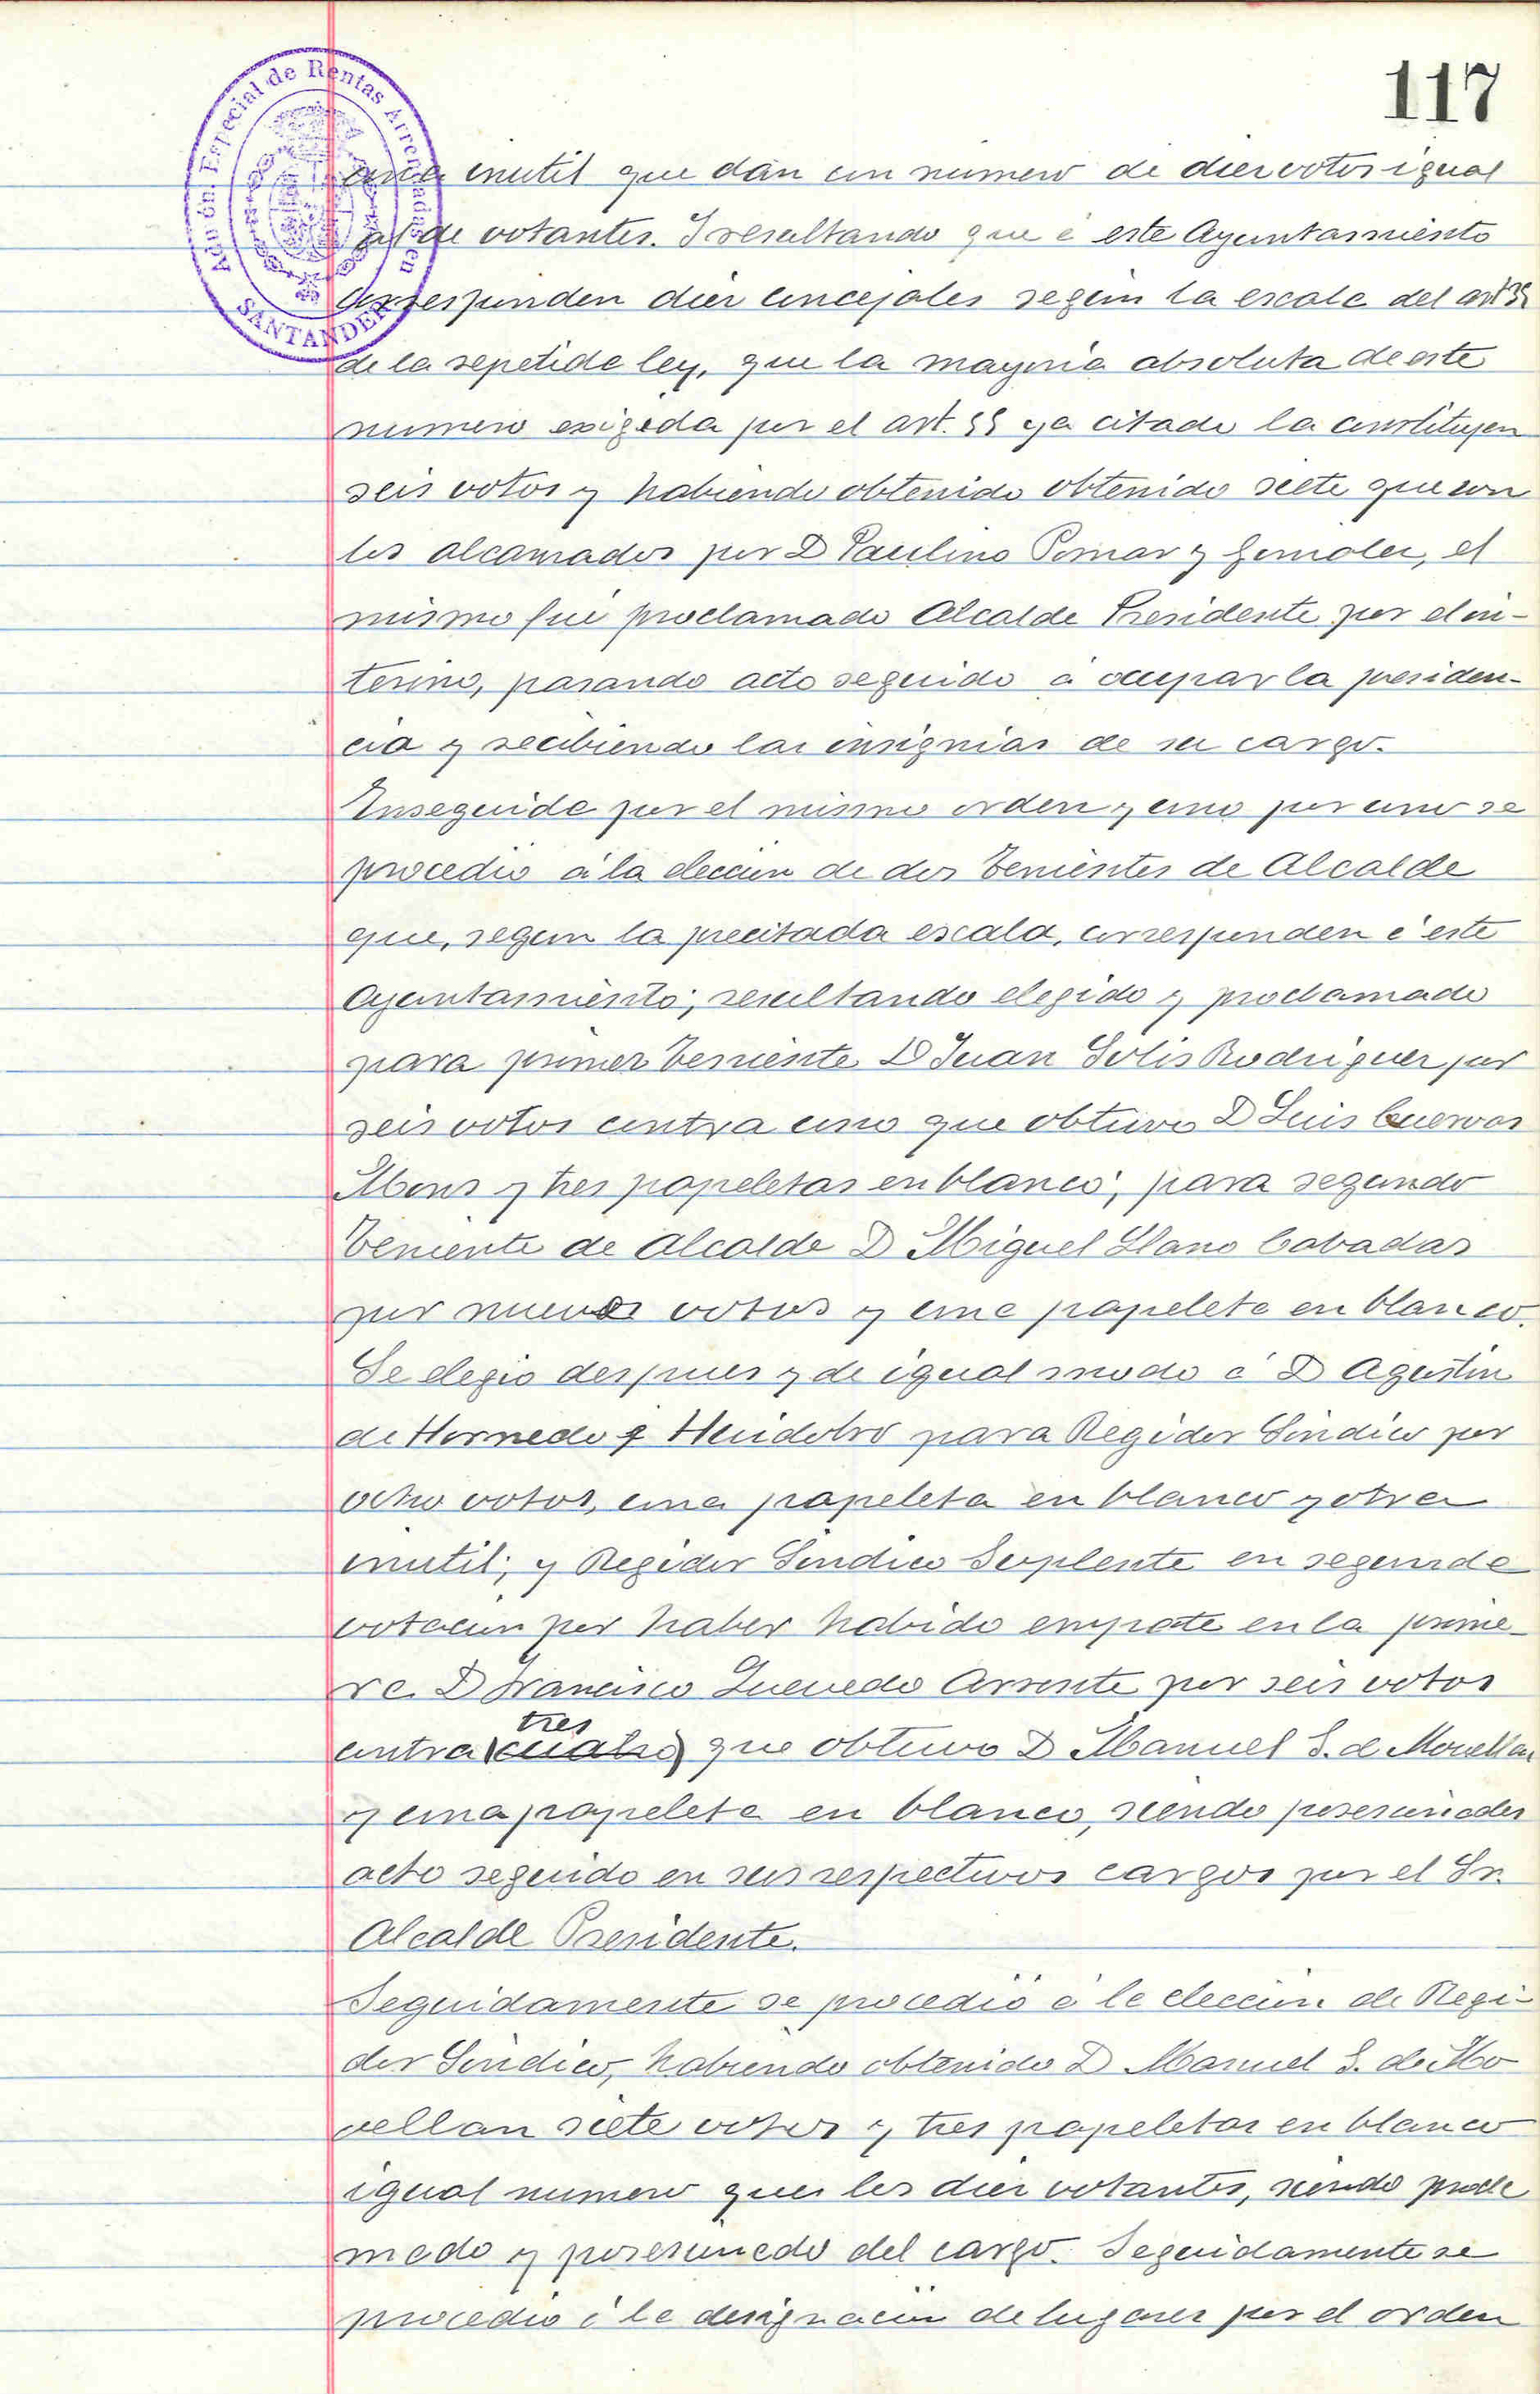 117
Admón. Especial de Rentas Arrendadas en
SANTANDER
una inutil que dán un número de diez votos igual
al de votantes. Y resultando que á este Ayuntamiento
corresponden diez concejales según la escala del art 35
de la repetida ley, que la mayoria absoluta de este
numero exigida por el art. 55 ya citado la constituyen
seis votos y habiendo obtenido obtenido siete que son
los alcanzados por D Paulino Pomar y, el
mismo fué proclamado Alcalde Presidente por el in-
terino, pasando acto seguido á ocupar la presiden-
cia y recibiendo las insignias de su cargo.
Enseguida por el mismo orden y uno por uno se
procedio á la eleccion de dos Tenientes de Alcalde
que, segun la precitada escala, corresponden á este
Ayuntamiento; resultando elegido y proclamado
para primer Teniente D Juan Solis Rodriguez por
seis votos contra uno que obtuvo D Luis Cuervas
Mons y tres papeletas en blanco; para segundo
Teniente de Alcalde D Miguel Llano Cabadas
por nueve votos y una papeleta en blanco.
Se elegio despues y de igual modo á D Agustin
de Hornedo y Huidobro para Regidor Sindico por
ocho votos, una papeleta en blanco y otra
inutil; y Regidor Sindico Suplente en segunda
votacion por haber habido empate en la prime-
ra D Francisco Quevedo Arronte por seis votos
tres
contra (cuatro) que obtuvo D Manuel S. de Movellan
y una papeleta en blanco, siendo posesionados
acto seguido en sus respectivos cargos por el Sr.
Alcalde Presidente.
Seguidamente se procedió á la elección de Regi-
dor Sindico, habiendo obtenido D Manuel S. de Mo
vellan siete votos y tres papeletas en blanco
igual numero que los diez votantes, siendo procla
mado y posesionado del cargo. Seguidamente se
procedio á la designación de lugares por el orden